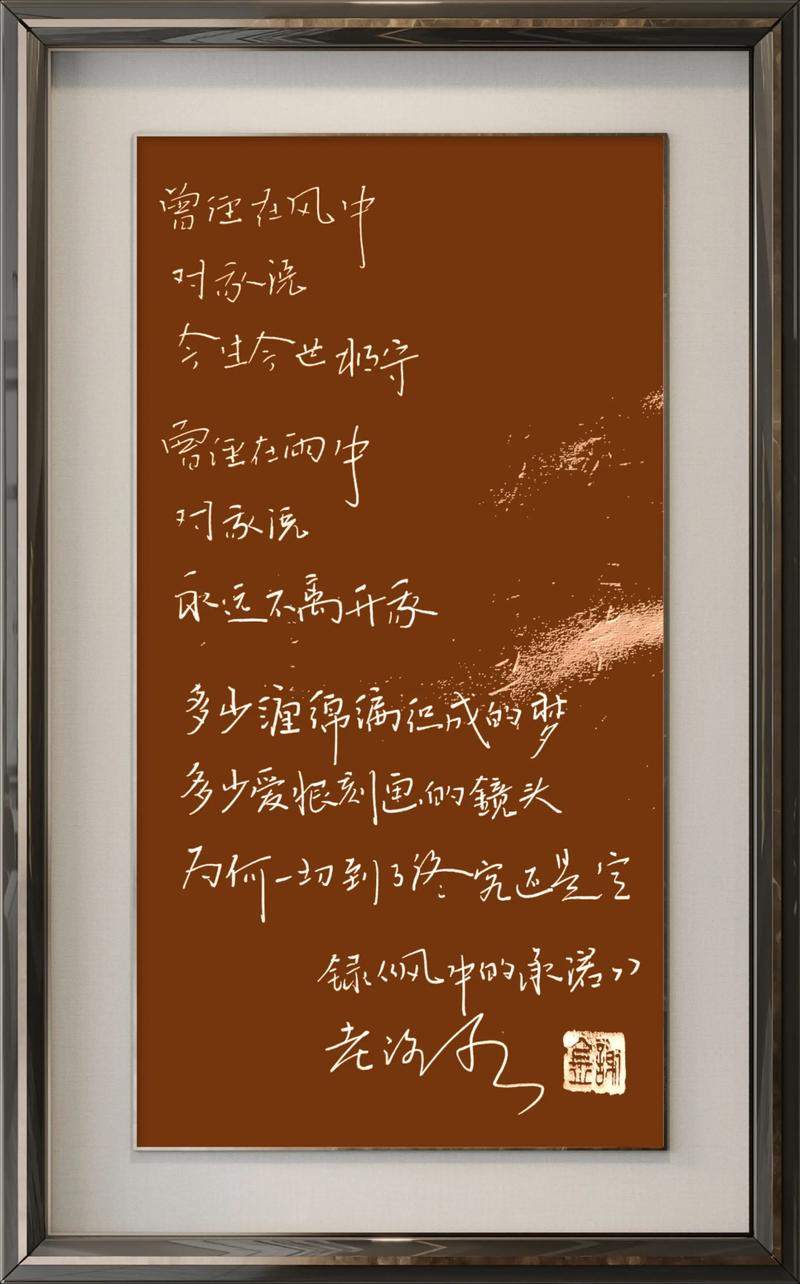 曾经在风中
对我说
今生今世相守
曾经在雨中
对我说
永远不离开我
多少缠绵编织成的梦
多少爱恨刻画的鏡头
为何一切到了终究还是空
録《风中的承诺》
老
謝